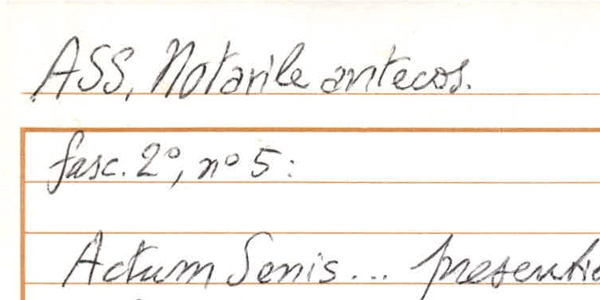 ASS, Notarile antecos.
fasc. 2°, n° 5:
Actum Senis...